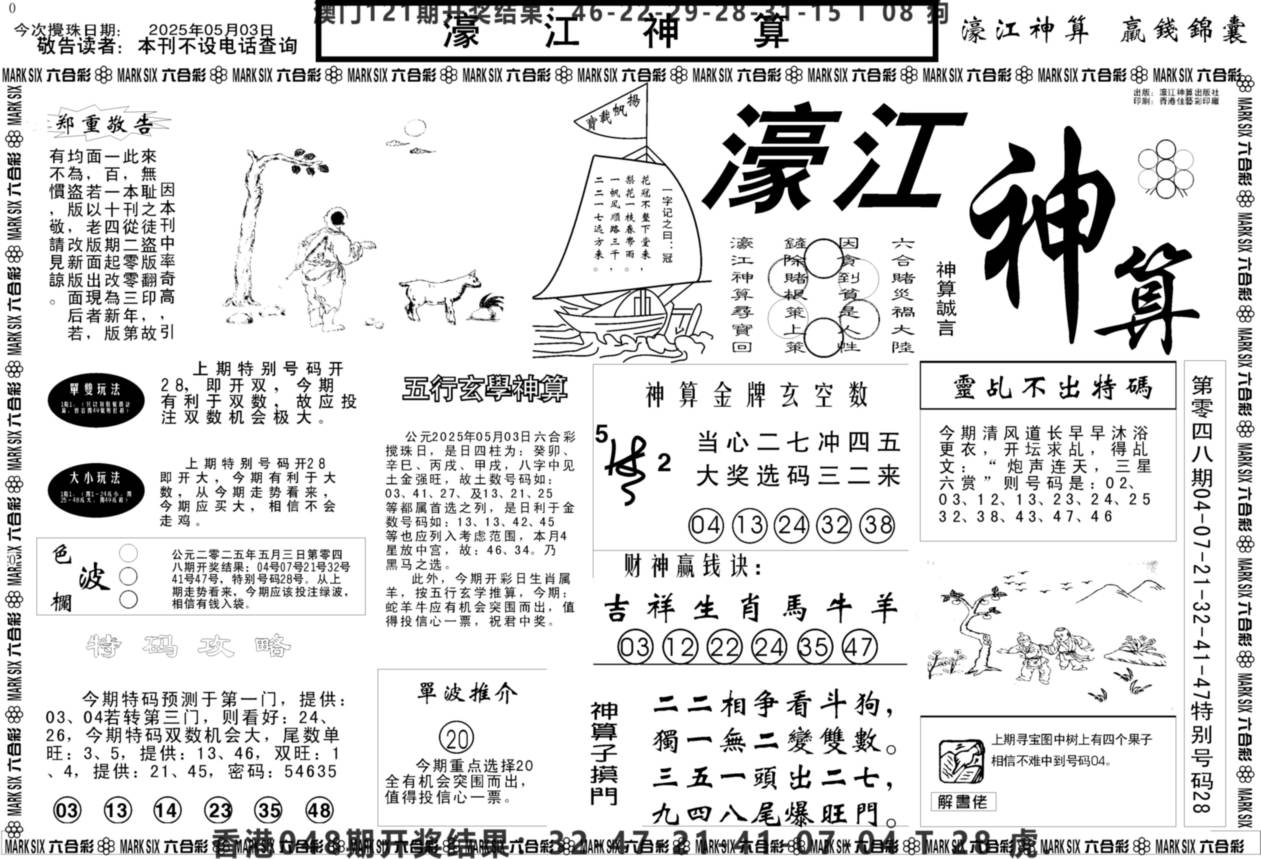 0
澳门121期开奖结果：46-22-29-28-31-15 T 08 狗
今次攪珠日期： 2025年05月03日
敬告读者：本刊不设电话查询
濠 江 神 算
濠江神算 贏錢錦囊
MARK SIX 六合彩 MARK SIX 六合彩 MARK SIX 六合彩 MARK SIX 六合彩 MARK SIX 六合彩 MARK SIX 六合彩 MARK SIX 六合彩 MARK SIX 六合彩 MARK SIX 六合彩 MARK SIX 六合彩 MARK SIX 六合彩
出版：濠江神算出版社
印刷：香港佳藝彩印廠
郑重敬告
因本刊中率奇高，引
來無耻之徒盜版翻印故
此，本刊從二零零三年第
一百一十四期起改為新版，
面，若以老版面出現者，
均為盜版，改新版面后若
有不慣，敬請見諒。
揚帆載財
一字记之曰：冠
花冠不整下堂来，
梨花一枝春带雨。
一帆风顺路三千，
二二一七远方来。
濠江
神算
六合賭災禍大陸
因貪到貧是人性
鏟除賭根策上策
濠江神算尋寶回
神算誠言
單雙玩法
上期特别号码开
28，即开双，今期
有利于双数，故应投
注双数机会极大。
大小玩法
上期特别号码开28
即开大，今期有利于大
数，从今期走势看来，
今期应买大，相信不会
走鸡。
色波欄
公元二零二五年五月三日第零四
八期开奖结果：04号07号21号32号
41号47号，特别号码28号。从上
期走势看来，今期应该投注绿波，
相信有钱入袋。
特码攻略
今期特码预测于第一门，提供：
03、04若转第三门，则看好：24、
26，今期特码双数机会大，尾数单
旺：3、5，提供：13、46，双旺：1
、4，提供：21、45，密码：54635
03 13 14 23 35 48
五行玄學神算
公元2025年05月03日六合彩
搅珠日，是日四柱为：癸卯、
辛巳、丙戌、甲戌，八字中见
土金强旺，故土数号码如：
03、41、27、及13、21、25
等都属首选之列，是日利于金
数号码如：13、13、42、45
等也应列入考虑范围，本月4
星放中宫，故：46、34。乃
黑马之选。
此外，今期开彩日生肖属
羊，按五行玄学推算，今期：
蛇羊牛应有机会突围而出，值
得投信心一票，祝君中奖。
單波推介
20
今期重点选择20
全有机会突围而出，
值得投信心一票。
神算金牌玄空数
5
2
当心二七冲四五
大奖选码三二来
04 13 24 32 38
财神赢钱诀：
吉祥生肖馬牛羊
03 12 22 24 35 47
神算子摸門
二二相争看斗狗，
獨一無二變雙數。
三五一頭出二七，
九四八尾爆旺門。
靈乩不出特碼
今期清风道长早早沐浴
更衣，开坛求乩，得乩
文：“炮声连天，三星
六赏”则号码是：02、
03、12、13、23、24、25
32、38、43、47、46
上期寻宝图中树上有四个果子
相信不难中到号码04。
解畫佬
第零四八期04-07-21-32-41-47特别号码28
MARK SIX 六合彩 MARK SIX 六合彩 MARK SIX 六合彩 MARK SIX 六合彩 MARK SIX 六合彩 MARK SIX 六合彩 MARK SIX 六合彩 MARK SIX 六合彩 MARK SIX 六合彩 MARK SIX 六合彩 MARK SIX 六合彩
香港048期开奖结果：32-47-21-41-07-04 T 28 虎